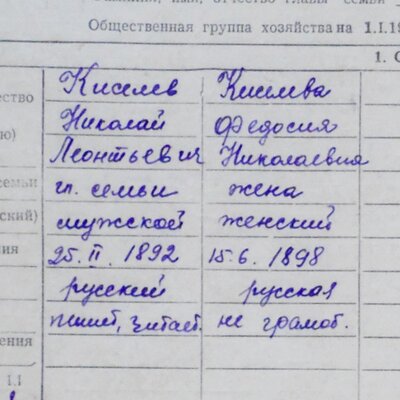 Общественная группа хозяйства на 1.I.19
1. С
Киселев Киселева
ество
Николай Федосия
ю)
Леонтьевич Николаевна
семьи гл. семьи жена
ский) мужской женский
ния 25. II. 1892 15.6. 1898
русский русская
пишет, читает. не грамот.
ения
1.1